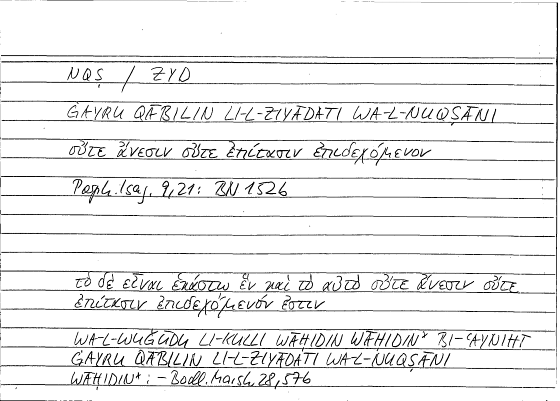 NQṢ / ZYD
ĠAYRU QĀBILIN LI-L-ZIYĀDATI WA-L-NUQṢĀNI
οὔτε ἄνεσιν οὔτε ἐπίτασιν ἐπιδεχόμενον
Porph. Isag. 9,21: BN 1526
τὸ δὲ εἶναι ἑκάστῳ ἓν καὶ τὸ αὐτὸ οὔτε ἄνεσιν οὔτε
ἐπίτασιν ἐπιδεχόμενόν ἐστιν
WA-L-WUǦŪDU LI-KULLI WĀḤIDIN WĀḤIDIN* BI-ʿAYNIHĪ
ĠAYRU QĀBILIN LI-L-ZIYĀDATI WA-L-NUQṢĀNI
WĀḤIDIN*: – Bodl. Marsh. 28, 576